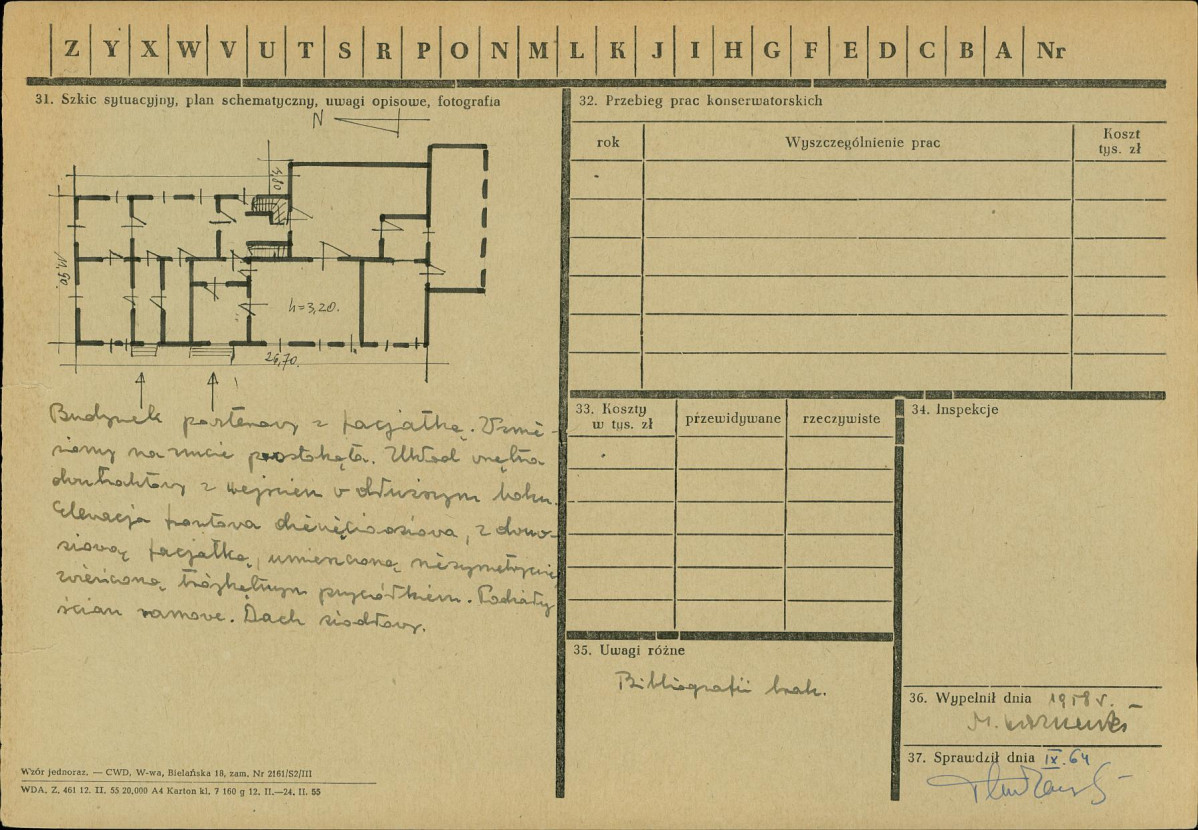 Z Y X W V U T S R P O N M L K J I H G F E D C B A Nr
31. Szkic sytuacyjny, plan schematyczny, uwagi opisowe, fotografia
N
4,80
11,90
h=3,20.
26,70
Budynek parterowy z facjatką. Wznie-
siony na rzucie prostokąta. Układ wnętrza
dwutraktowy z wejściem w dłuższym boku.
Elewacja frontowa dziewięcioosiowa, z dwuo-
siową facjatką, umieszczoną niesymetrycznie
zwieńczoną trójkątnym przyczółkiem. Podziały
ścian ramowe. Dach siodłowy.
Wzór jednoraz. — CWD, W-wa, Bielańska 18, zam. Nr 2161/S2/III
WDA. Z. 461 12. II. 55 20,000 A4 Karton kl. 7 160 g 12. II.—24. II. 55
32. Przebieg prac konserwatorskich
rok Wyszczególnienie prac Koszt
tys. zł
33. Koszty
w tys. zł przewidywane rzeczywiste
34. Inspekcje
35. Uwagi różne
Bibliografii brak.
36. Wypełnił dnia 1958 r.
M.
37. Sprawdził dnia IX. 64